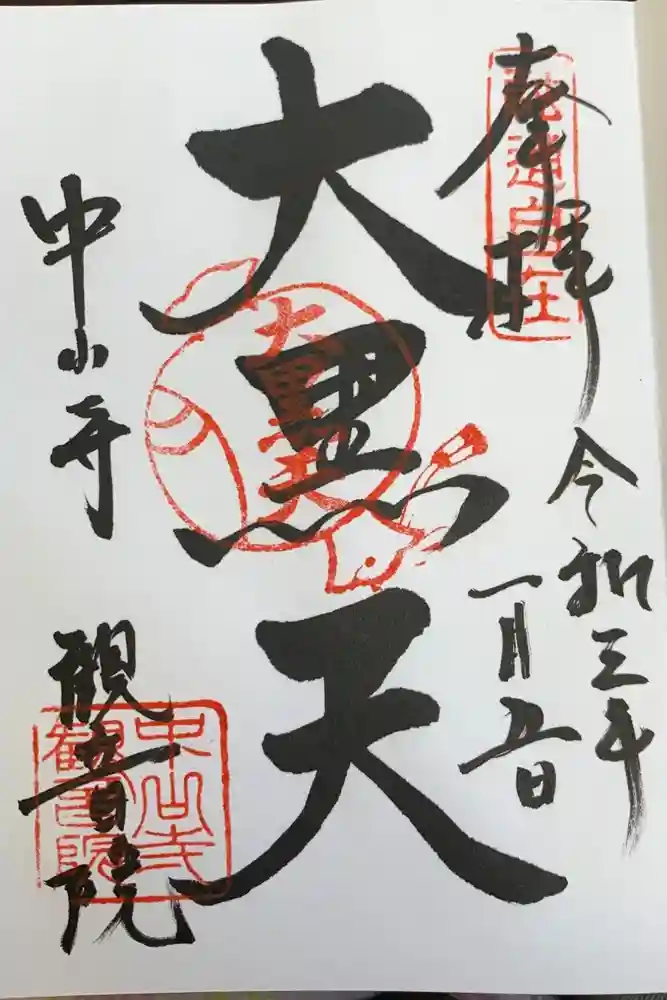 奉拝
令和三年
一月五日
大黒天
大黒天
中山寺
観音院
中山寺
観音院